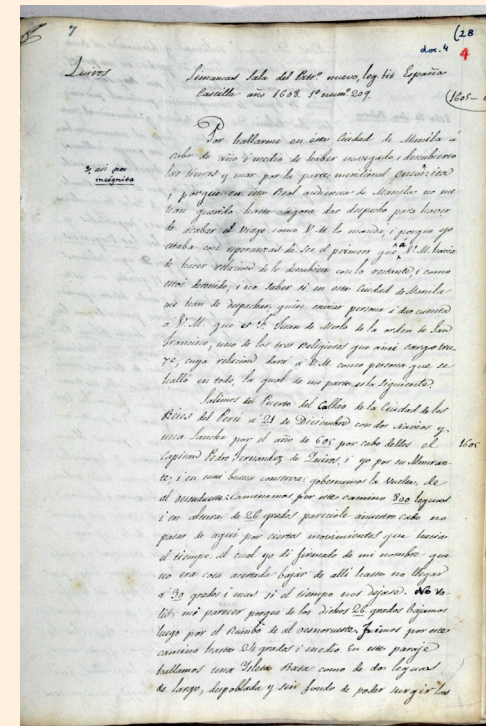 7
(28
doc. 4
4
Quiros
Simancas Sala del Patr.º nuevo, leg. 616 España
Castilla año 1608. 1º num.º 209.
(1605-
Por hallarme en esta Ciudad de Manila á
cabo de año i medio de haber navegado i descubierto
las tierras y mar por la parte meridional encuarica
¿ así por
incógnita
i porque en esta Real audiencia de Manila no me
han querido hasta agora dar despacho para haver
de acabar el viage como V. M. lo manda; i porque yo
estaba con esperanzas de ser el primero que á V. M. havia
de hacer relacion de lo descubierto con lo restante, i como
estoi detenido, i no saber si en esta Ciudad de Manila
me han de despachar, quise enviar persona i dar cuenta
á V. M. que es Fr. Juan de Merlo de la orden de San
Francisco, uno de los tres Religiosos que á mi cargo tru-
xe, cuya relacion dará á V. M. como persona que se
halló en todo, la qual de mi parte es la siguiente.
Salimos del Puerto del Callao de la Ciudad de los
Reies del Perú á 21 de Diciembre con dos Navios y
una Lancha por el año de 605 por cabo dellos el
1605
Capitan Pedro Fernandez de Quiros, i yo por su Almiran-
te; i en mui buena conserva gobernamos la vuelta de
al oesudueste: Caminamos por este camino 800 leguas
i en altura de 26 grados pareciole á nuestro cabo no
pasar de aqui por ciertos movimientos que hacia
el tiempo, al cual yo di firmado de mi nombre que
no era cosa acertada bajar de alli hasta no llegar
á 30 grados i mas si el tiempo nos dejase. No va
lió mi parecer porque de los dichos 26 grados bajamos
luego por el Rumbo de al oesnorueste. Fuimos por este
camino hasta 24 grados i medio en este paraje
hallamos una Isleta Rasa como de dos leguas
de largo, despoblada y sin fondo de poder surgir los